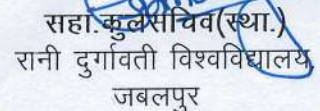 सहा.कुलसचिव(स्था.)
रानी दुर्गावती विश्वविद्यालय,
जबलपुर